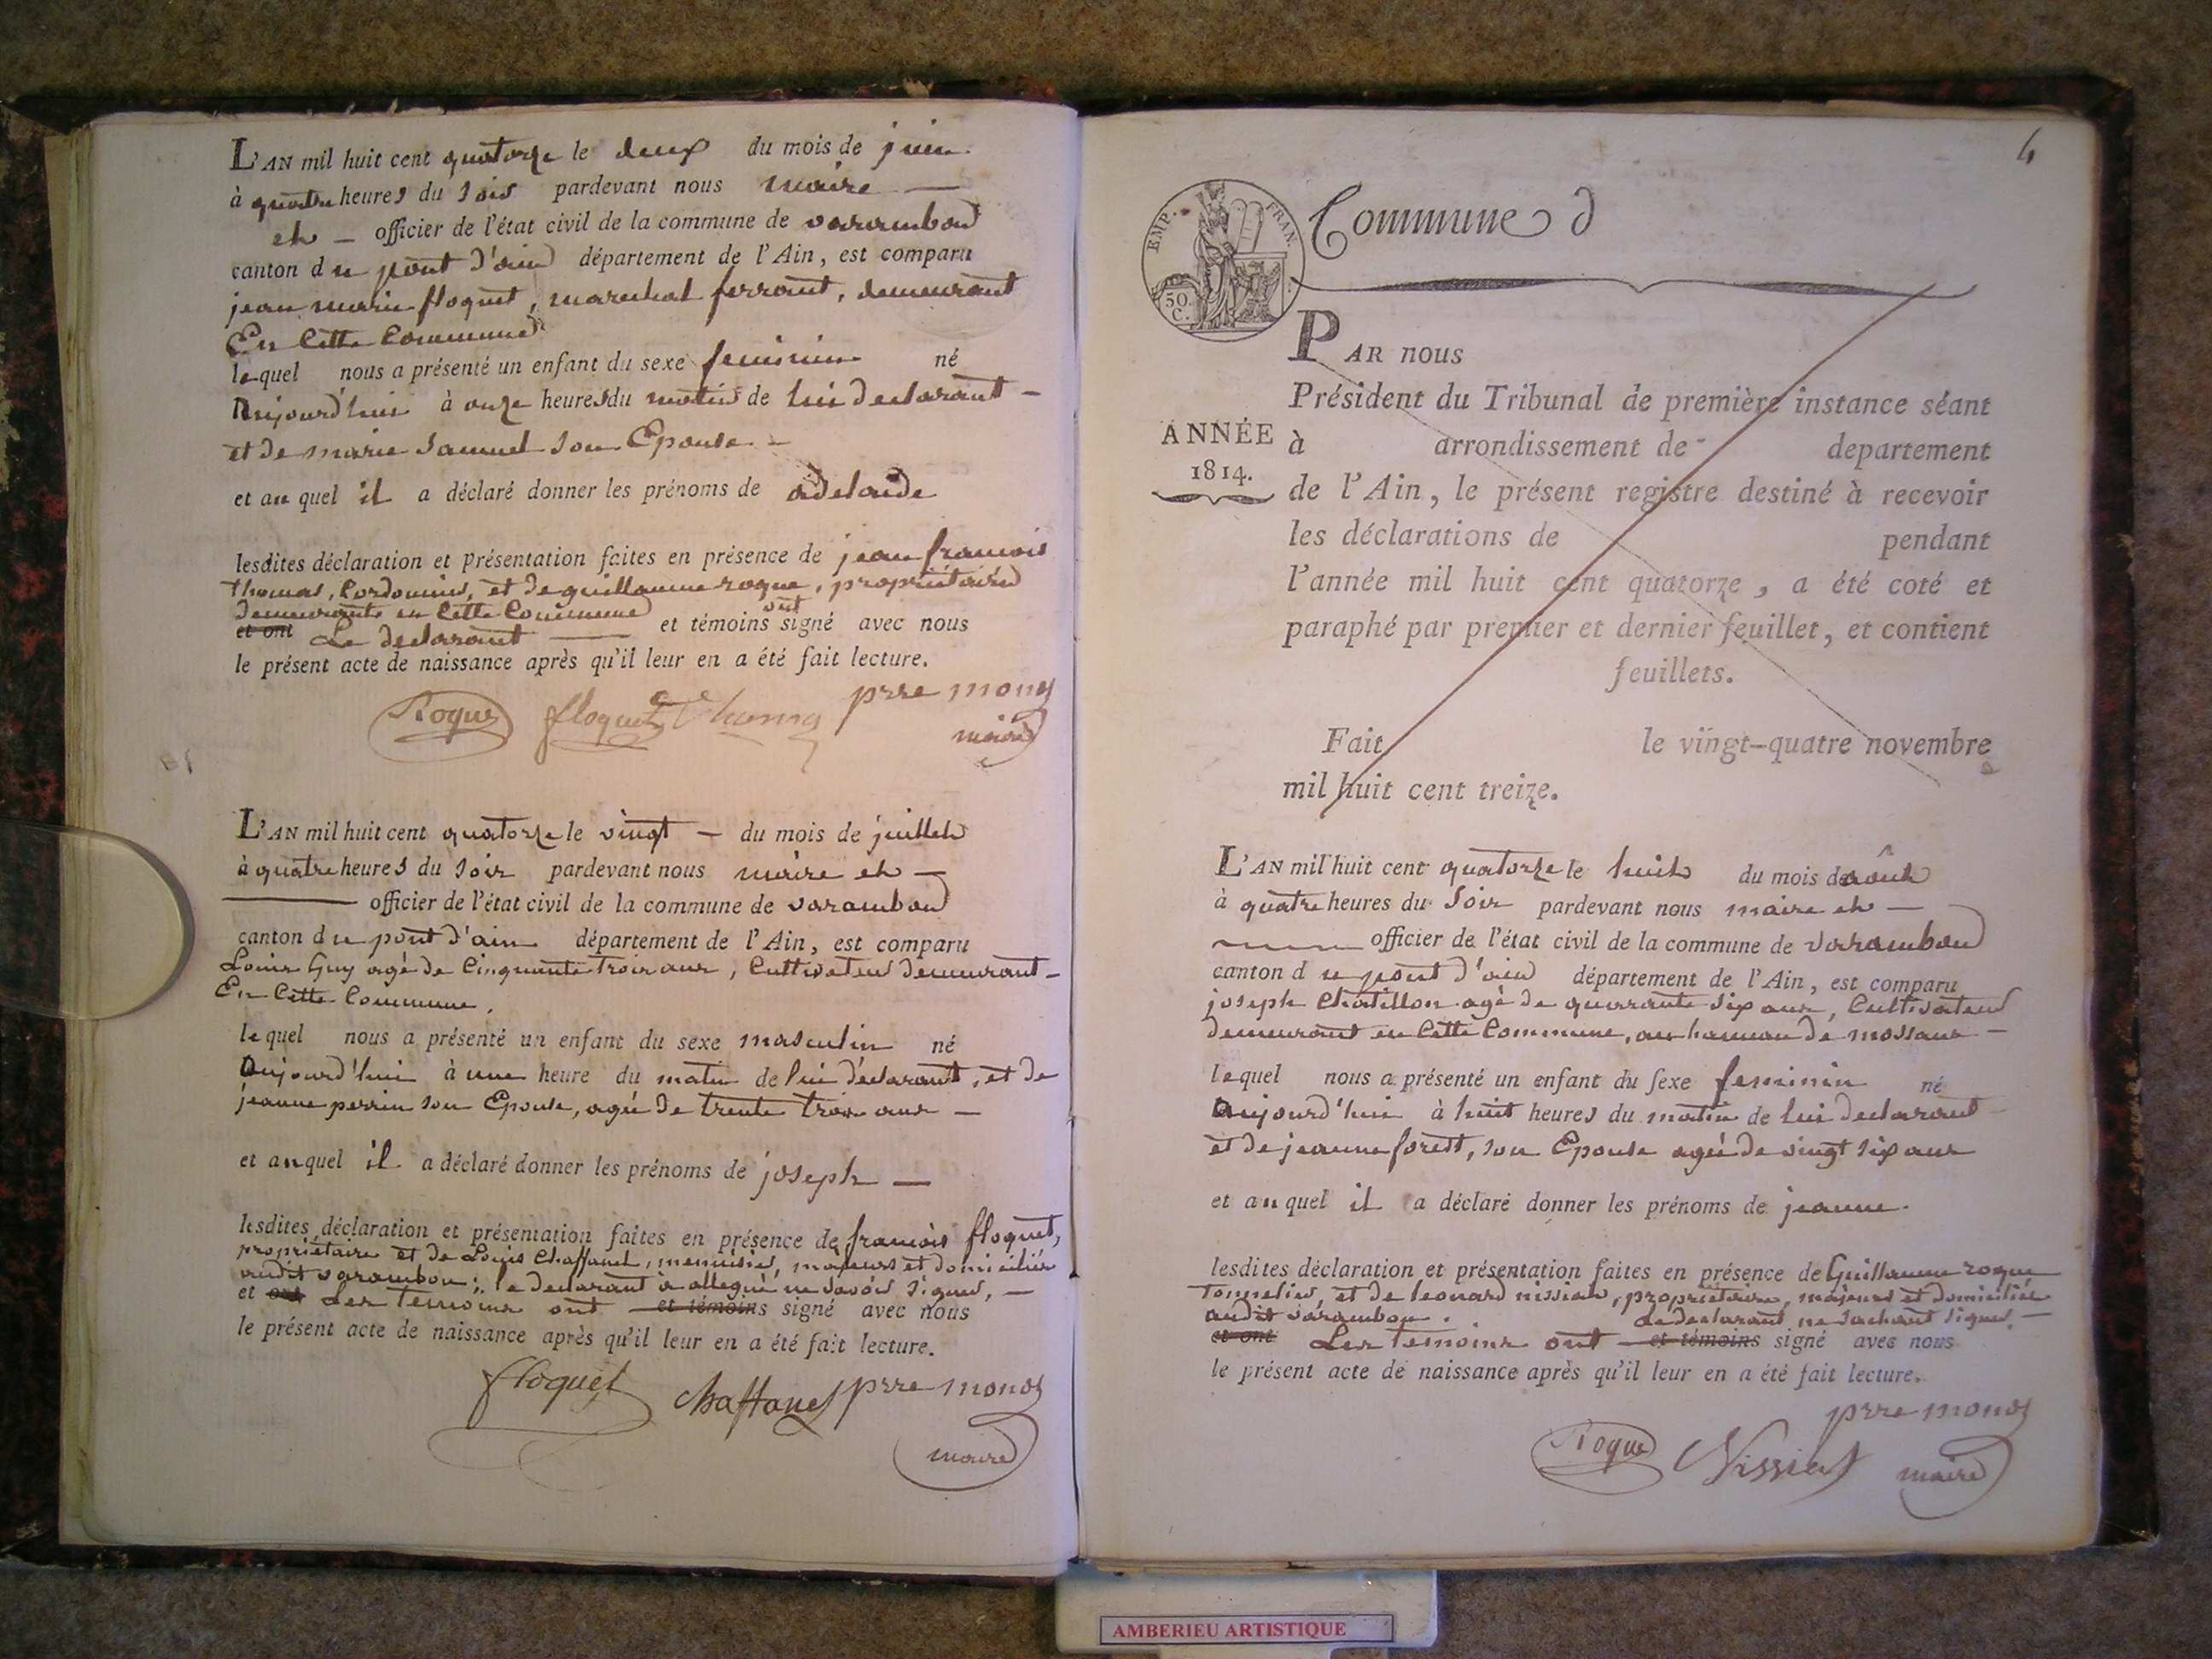 L'AN mil huit cent quatorze le deux du mois de juin
à quatre heures du soir pardevant nous maire —
et — officier de l'état civil de la commune de varambon
canton du pont d'ain département de l'Ain, est comparu
jean marie floquet, marechal ferrant, demeurant
En cette Commune
lequel nous a présenté un enfant du sexe feminin né
Aujourd'hui à onze heures du matin de lui declarant —
et de marie Samuel son Epouse —
et au quel il a déclaré donner les prénoms de adelaide
lesdites déclaration et présentation faites en présence de jean francois
thomas, Cordonnier, et de guillaume roque, propriétaire
demeurants en Cette Commune
et ont Le declarant — et témoins ont signé avec nous
le présent acte de naissance après qu'il leur en a été fait lecture.
Roque floquet Thomas prre monoz
maire
L'AN mil huit cent quatorze le vingt — du mois de juillet
à quatre heures du soir pardevant nous maire et —
— officier de l'état civil de la commune de varambon
canton du pont d'ain département de l'Ain, est comparu
Louis Guy agé de Cinquante trois ans, Cultivateur demeurant —
En Cette Commune,
lequel nous a présenté un enfant du sexe masculin né
Aujourd'hui à une heure du matin de lui déclarant, et de
jeanne perrin son Epouse, agée de trente trois ans —
et auquel il a déclaré donner les prénoms de joseph —
lesdites déclaration et présentation faites en présence de francois floquet,
propriétaire et de Louis Chaffanel, menuisier, majeurs et domiciliés
audit varambon; le declarant a allegué ne savoir signer, —
et ont Les temoins ont — et témoins signé avec nous
le présent acte de naissance après qu'il leur en a été fait lecture.
floquet Chaffanel prre monoz
maire
4
EMP. FRAN.
50.
C.
Commune d
PAR nous
Président du Tribunal de première instance séant
ANNÉE
1814.
à arrondissement de departement
de l'Ain, le présent registre destiné à recevoir
les déclarations de pendant
l'année mil huit cent quatorze, a été coté et
paraphé par premier et dernier feuillet, et contient
feuillets.
Fait le vingt-quatre novembre
mil huit cent treize.
L'AN mil huit cent quatorze le huit du mois de août
à quatre heures du Soir pardevant nous maire et —
— officier de l'état civil de la commune de varambon
canton du pont d'ain département de l'Ain, est comparu
joseph Chatillon agé de quarante six ans, Cultivateur
demeurant en Cette Commune, au hameau de mossans —
lequel nous a présenté un enfant du sexe feminin né
Aujourd'hui à huit heures du matin de lui declarant
et de jeanne forest, son Epouse agée de vingt six ans
et au quel il a déclaré donner les prénoms de jeanne.
lesdites déclaration et présentation faites en présence de Guillaume roque
Tonnelier, et de léonard nissiat, propriétaire, majeurs et domiciliés
audit varambon. Le declarant ne sachant signer. —
et ont Les temoins ont — et témoins signé avec nous
le présent acte de naissance après qu'il leur en a été fait lecture.
prre monoz
Roque Nissiat maire
AMBERIEU ARTISTIQUE